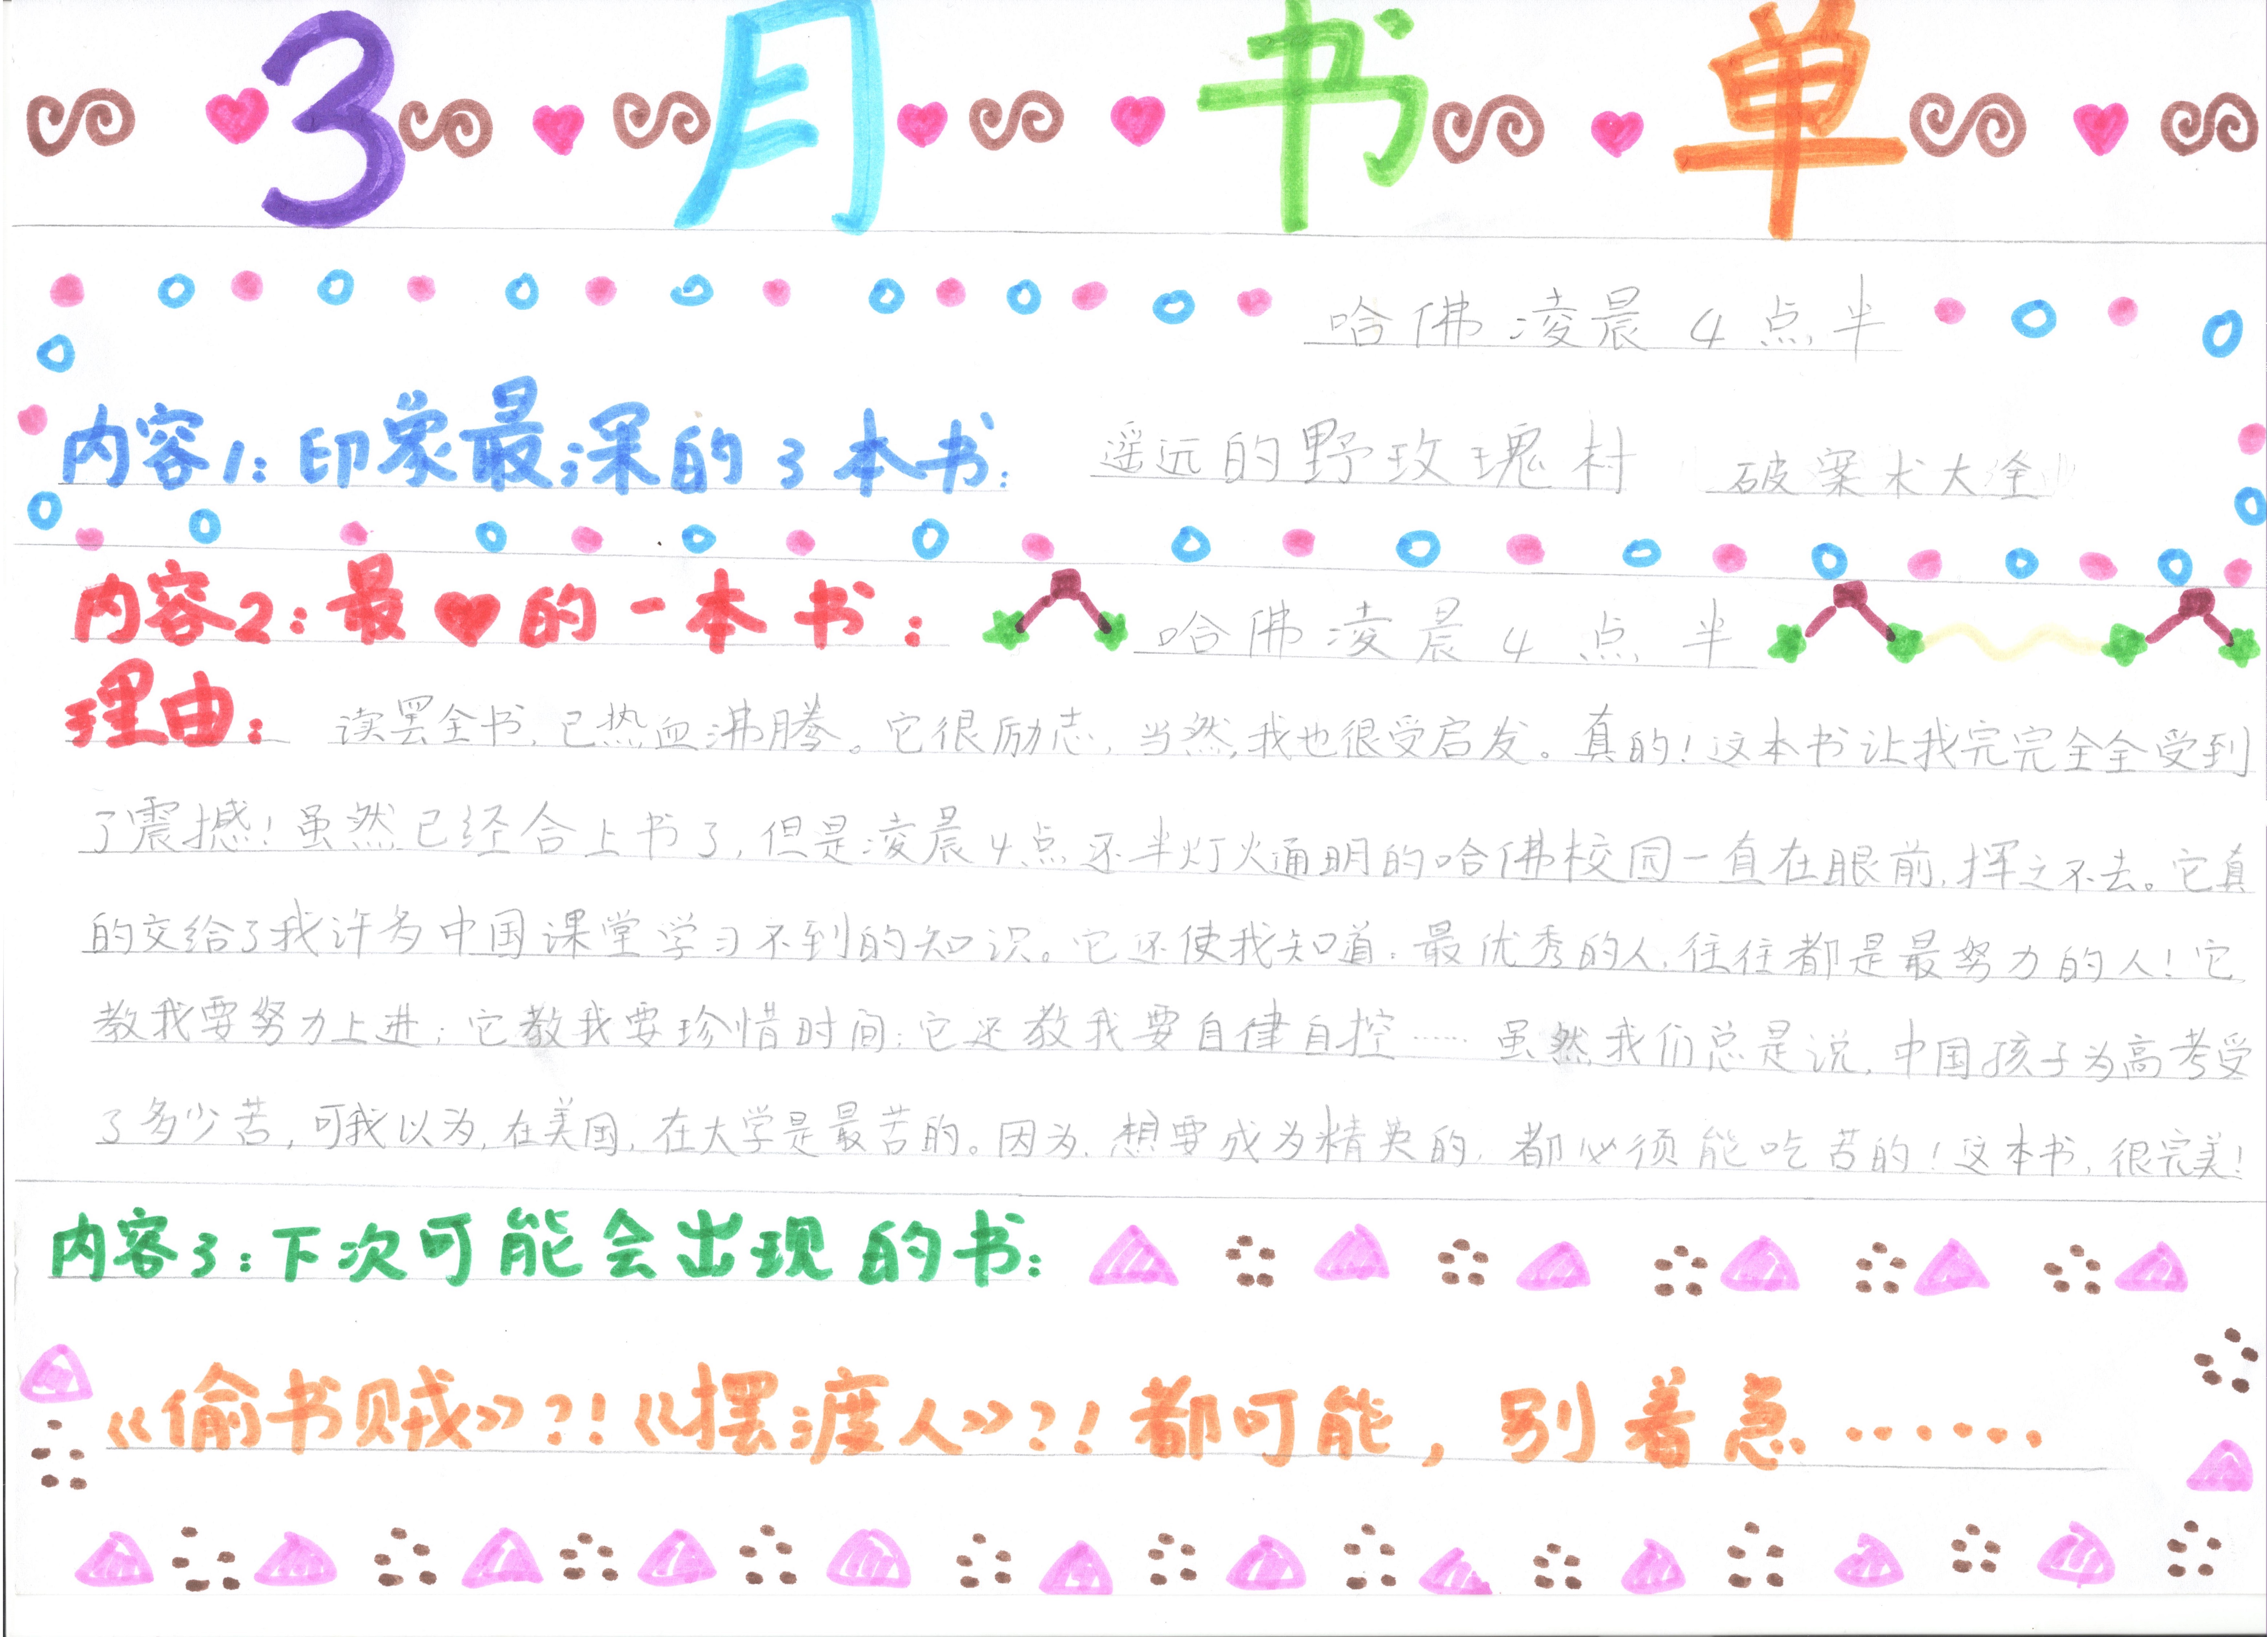 3月书单
哈佛凌晨4点半
内容1:印象最深的3本书: 遥远的野玫瑰村 破案术大全
内容2:最♥的一本书: 哈佛凌晨4点半
理由: 读罢全书,已热血沸腾。它很励志,当然,我也很受启发。真的!这本书让我完完全全受到
了震撼!虽然已经合上书了,但是凌晨4点还半灯火通明的哈佛校园一直在眼前,挥之不去。它真
的交给了我许多中国课堂学习不到的知识。它还使我知道:最优秀的人,往往都是最努力的人!它
教我要努力上进;它教我要珍惜时间;它还教我要自律自控……虽然我们总是说,中国孩子为高考受
了多少苦,可我以为,在美国,在大学是最苦的。因为,想要成为精英的,都必须能吃苦的!这本书,很完美!
内容3:下次可能会出现的书:
《偷书贼》?!《摆渡人》?!都可能,别着急……